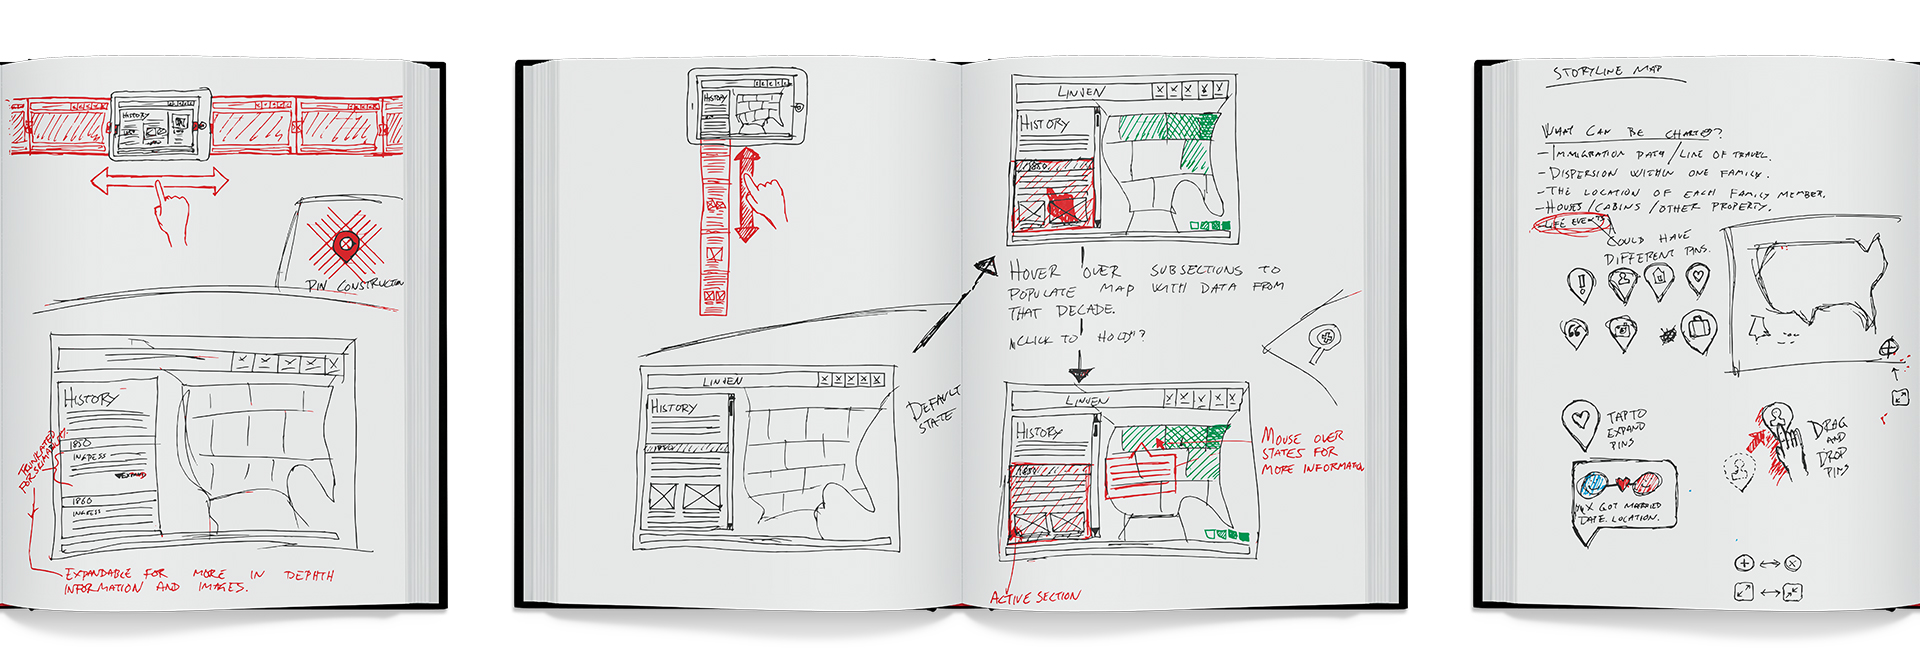 HISTORY
PIN CONSTRUCTION
HISTORY
1850
INGRESS
EXPAND
1860
INGRESS
TRUNCATED
FOR SEMANTIC
EXPANDABLE FOR MORE IN DEPHTH
INFORMATION AND IMAGES.
HISTORY
LINVEN
HISTORY
DEFAULT
STATE
LINVEN
HISTORY
1850
HOVER OVER SUBSECTIONS TO
POPULATE MAP WITH DATA FROM
THAT DECADE.
"CLICK TO HOLD"?
LINVEN
HISTORY
1850
MOUSE OVER
STATES FOR
MORE INFORMATION
ACTIVE SECTION
STORYLINE MAP
WHAT CAN BE CHARTED?
-IMMIGRATION PATH/LINE OF TRAVEL.
-DISPERSION WITHIN ONE FAMILY.
-THE LOCATION OF EACH FAMILY MEMBER.
-HOUSES/CABINS/OTHER PROPERTY.
-LIFE EVENTS
COULD HAVE
DIFFERENT PINS.
TAP TO
EXPAND
PINS
DRAG
AND
DROP
PINS
X GOT MARRIED
DATE. LOCATION.